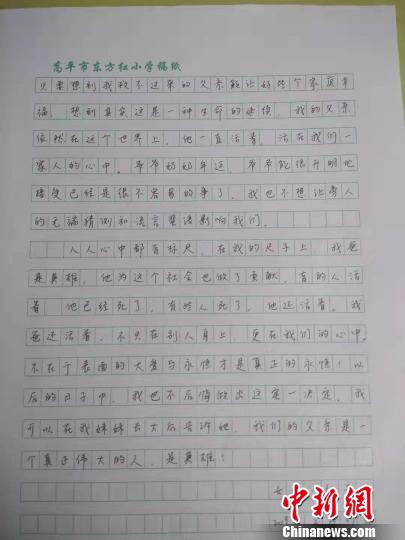 高平市东方红小学稿纸
只要想到我救不过来的父亲能让好些个家庭幸
福。想到其实这是一种生命的延续，我的父亲
依然在这个世界上，他一直活着，活在我们一
家人的心中。爷爷奶奶年迈，爷爷能很开明地
接受已经是很不容易的事了，我也不想让旁人
的无端猜测和流言蜚语影响我们。
人人心中都有标尺，在我的尺子上，我爸
是英雄，他为这个社会也做了贡献，有的人活
着 他已经死了，有些人死了，他还活着。我
爸还活着，不只在别人身上，更在我们的心中。
不在于表面的大爱与永恒才是真正的永恒！以
后的日子中，我也不后悔做出这一决定，我
可以在我妹妹长大后告诉她，我们的父亲是一
个真正伟大的人，是英雄！
中新网